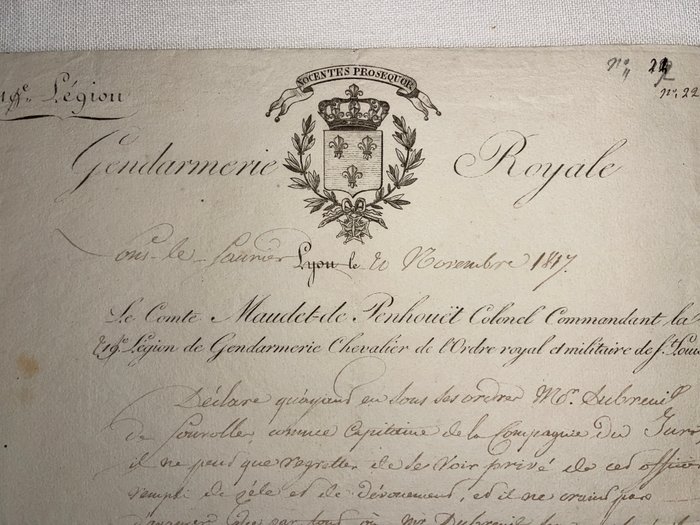 NOCENTES PROSEQUOR
Légion
n° 22
n°. 22
Gendarmerie Royale
Lons-le-Saunier Lyon le 20 Novembre 1817.
Le Comte Maudet-de Penhouët Colonel Commandant la
19e. Légion de Gendarmerie Chevalier de l'Ordre royal et militaire de St. Loui
Déclare qu'ayant eu sous ses ordres Mr. Dubreuil
de comme Capitaine de la Compagnie du Jura
il ne peut que regretter de se voir privé de cet officier
rempli de zèle et de dévouement, et il ne craint pas